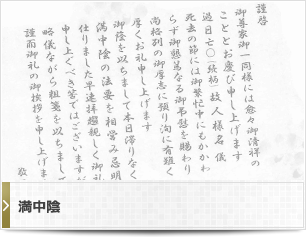 謹啓
御尊家御一同様には愈々御清祥の
こととお慶び申し上げます
過日亡〇 続柄 故人様名 儀
死去の節には御繁忙中にもかかわ
らず御懇篤なる御弔慰を賜わり
尚格別の御厚志に預り洵に有難く
厚くお礼申し上げます
御陰を以ちまして本日滞りなく
満中陰の法要を相営み忌明
仕りました早速拝趨親しく御礼
申し上ぐべき筈ではございますが
略儀ながら粗箋を以ちまして
謹而御礼の御挨拶を申し上げま
敬
満中陰